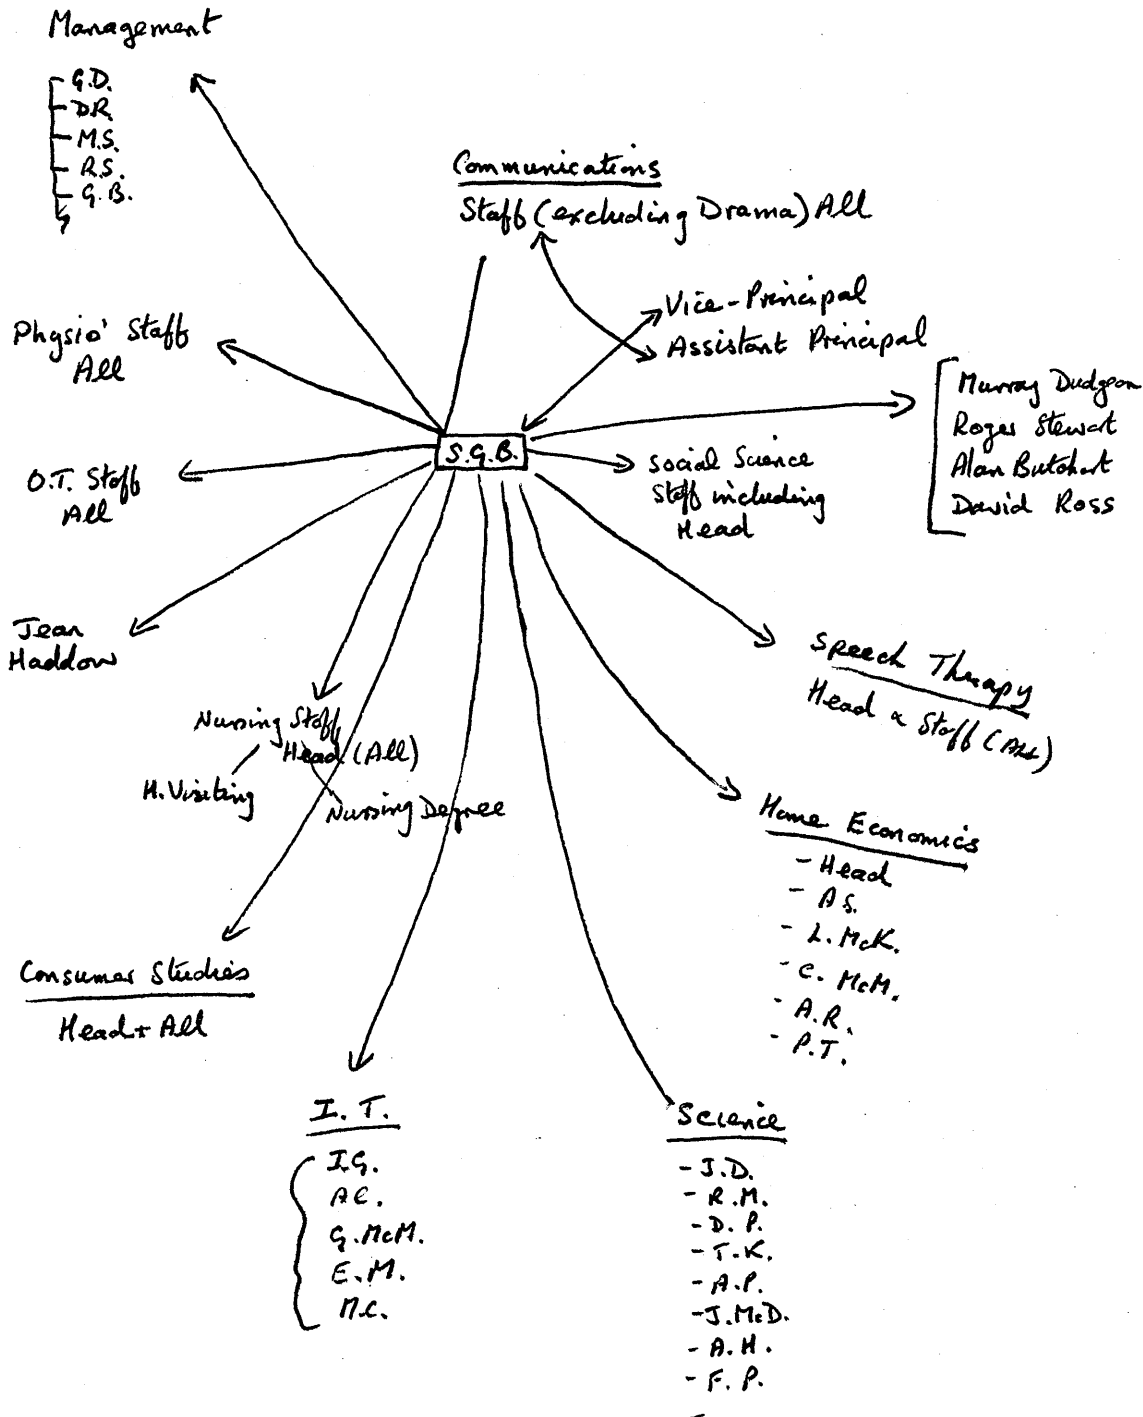 Management
G.D.
D.R.
M.S.
R.S.
G.B.
Communications
Staff (excluding Drama) All
Vice-Principal
Assistant Principal
Physio' Staff
All
Murray Dudgeon
Roger Stewart
Alan Butchart
David Ross
S.G.B.
Social Science
Staff including
Head
O.T. Staff
All
Jean
Haddow
Speech Therapy
Head & Staff (All)
Nursing Staff
Head (All)
H. Visiting
Nursing Degree
Home Economics
- Head
- A.S.
- L. McK.
- C. McM.
- A.R.
- P.T.
Consumer Studies
Head + All
I. T.
I.G.
A.C.
G. McM.
E.M.
M.C.
Science
- J.D.
- R.M.
- D.P.
- T.K.
- A.P.
- J.McD.
- A.H.
- F.P.